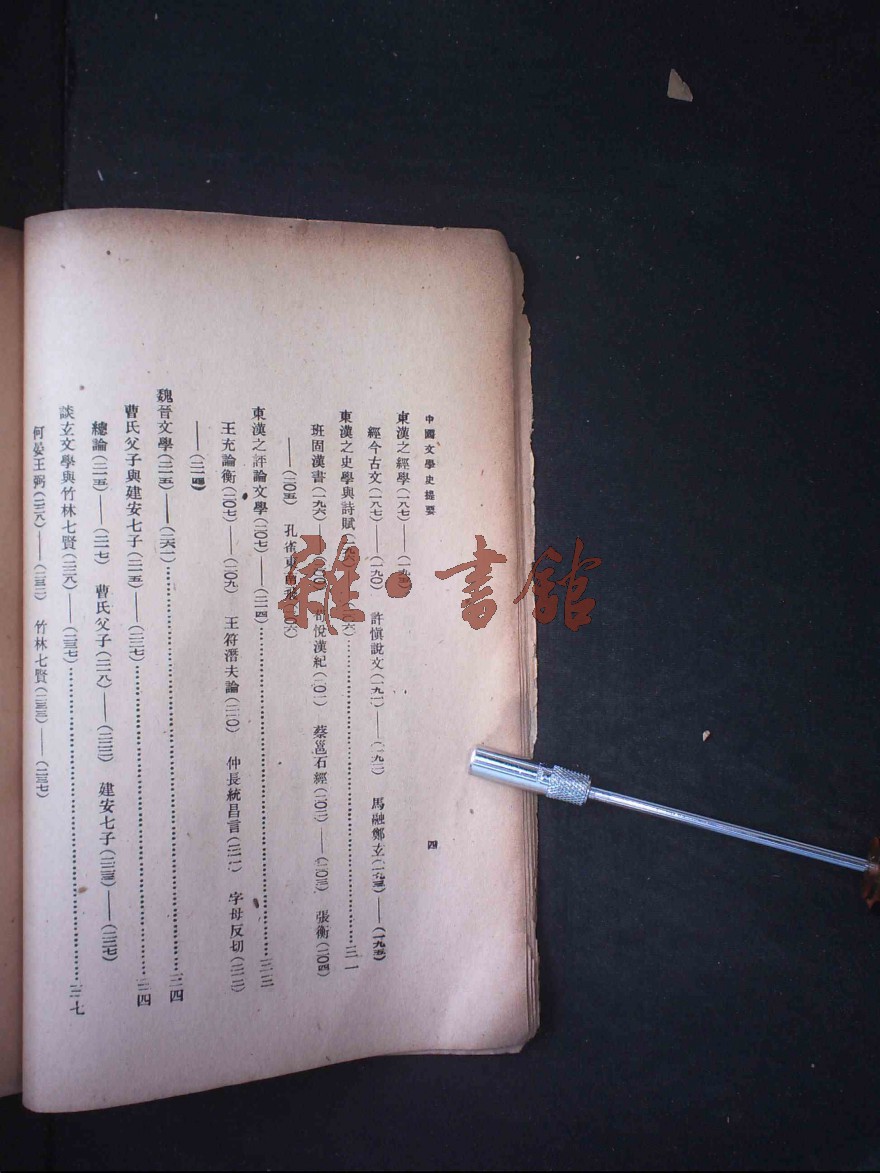 中國文學史提要
四
東漢之經學(一八七)——(一九五)
經今古文(一八七)——(一九〇) 許愼說文(一九一)——(一九二) 馬融鄭玄(一九三)——(一九五)
東漢之史學與詩賦(一九六)…………三一
班固漢書(一九六)——荀悅漢紀(二〇一) 蔡邕石經(二〇二)——(二〇三) 張衡(二〇四)
——(二〇五) 孔雀東南飛(二〇六)
東漢之評論文學(二〇七)——(二一四)…………三三
王充論衡(二〇七)——(二〇九) 王符潛夫論(二一〇) 仲長統昌言(二一一) 字母反切(二一二)
——(二一四)
魏晉文學(二一五)——(二六一)…………三四
曹氏父子與建安七子(二一五)——(二二七)…………三四
總論(二一五)——(二一七) 曹氏父子(二一八)——(二二二) 建安七子(二二三)——(二二七)
談玄文學與竹林七賢(二二八)——(二三七)…………三七
何晏王弼(二二八)——(二三二) 竹林七賢(二三三)——(二三七)
雜·書館